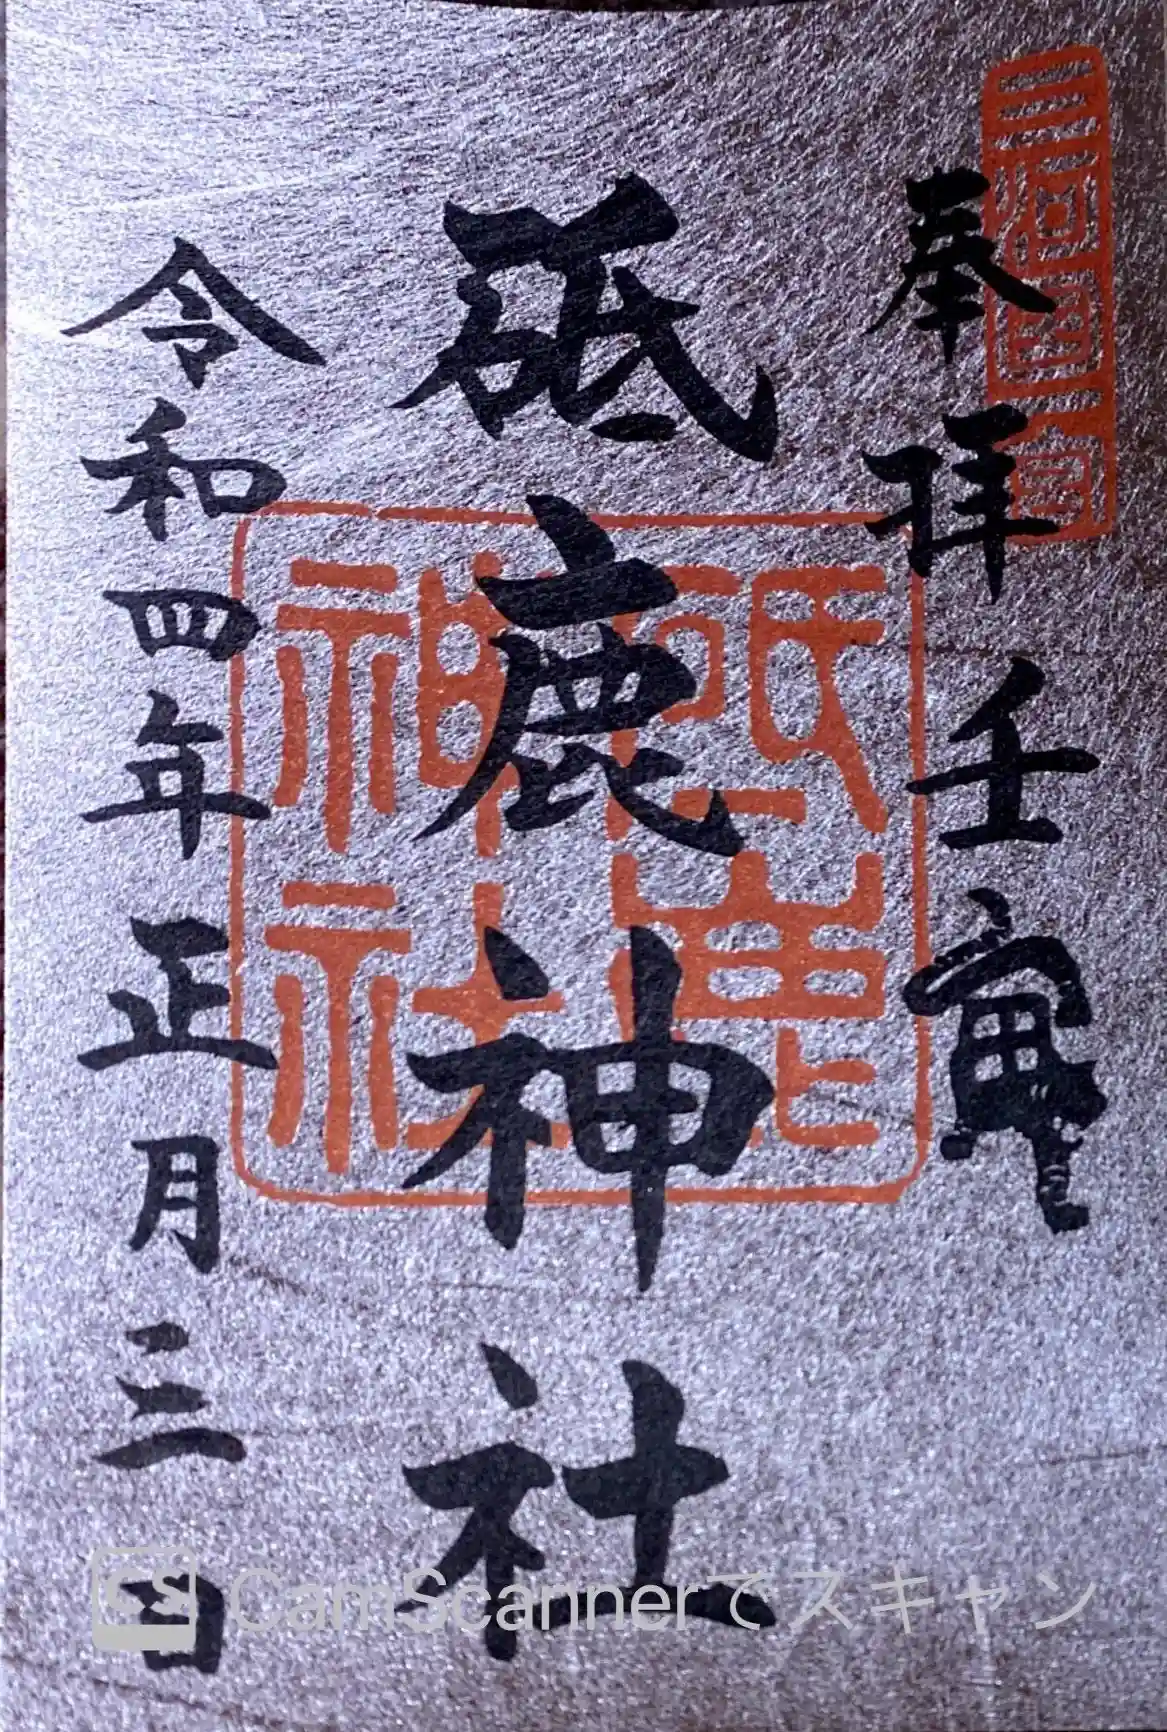 三河国一宮
奉拝 壬寅
砥鹿神社
砥鹿神社
令和四年正月三日
CS CamScannerでスキャン